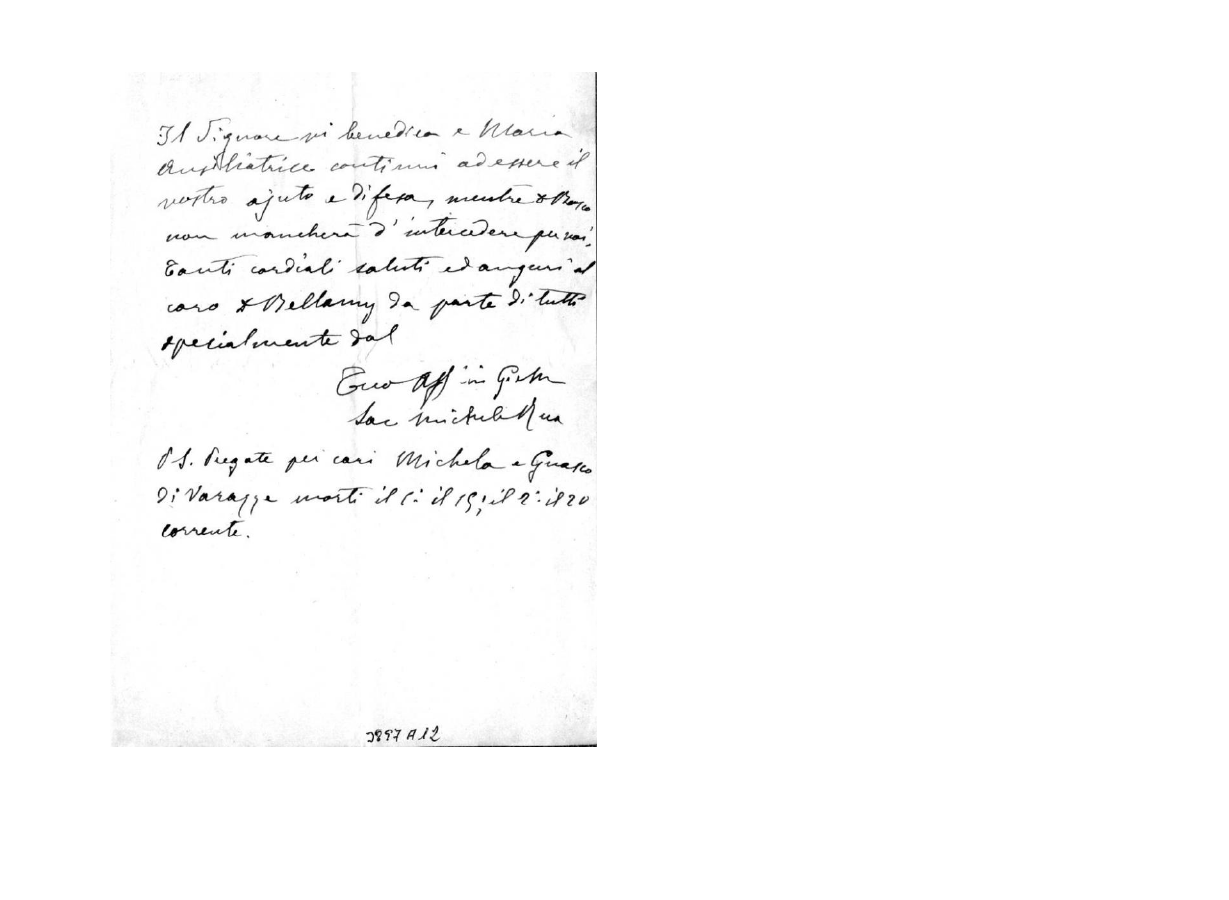 Il Signore vi benedica e Maria
Ausiliatrice continui ad essere il
vostro ajuto e difesa, mentre D Bosco
non mancherà d'intercedere per voi.
Tanti cordiali saluti ed auguri al
caro D Bellamy da parte di tutti
specialmente dal
Tuo Aff in G
Sac Michele Rua
PS. Pregate pei cari Michela e Guasco
di Varazze morti il 1° il 15; il 2° il 20
corrente.
3897 A12